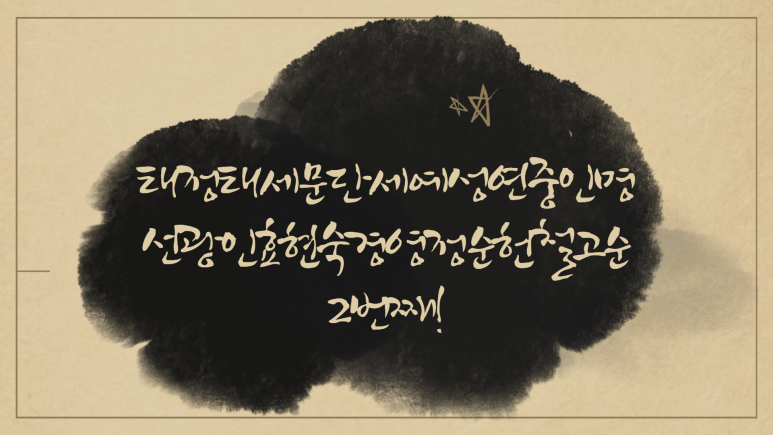 태정태세문단세예성연중인명
선광인효현숙경영정순헌철고순
2번째!